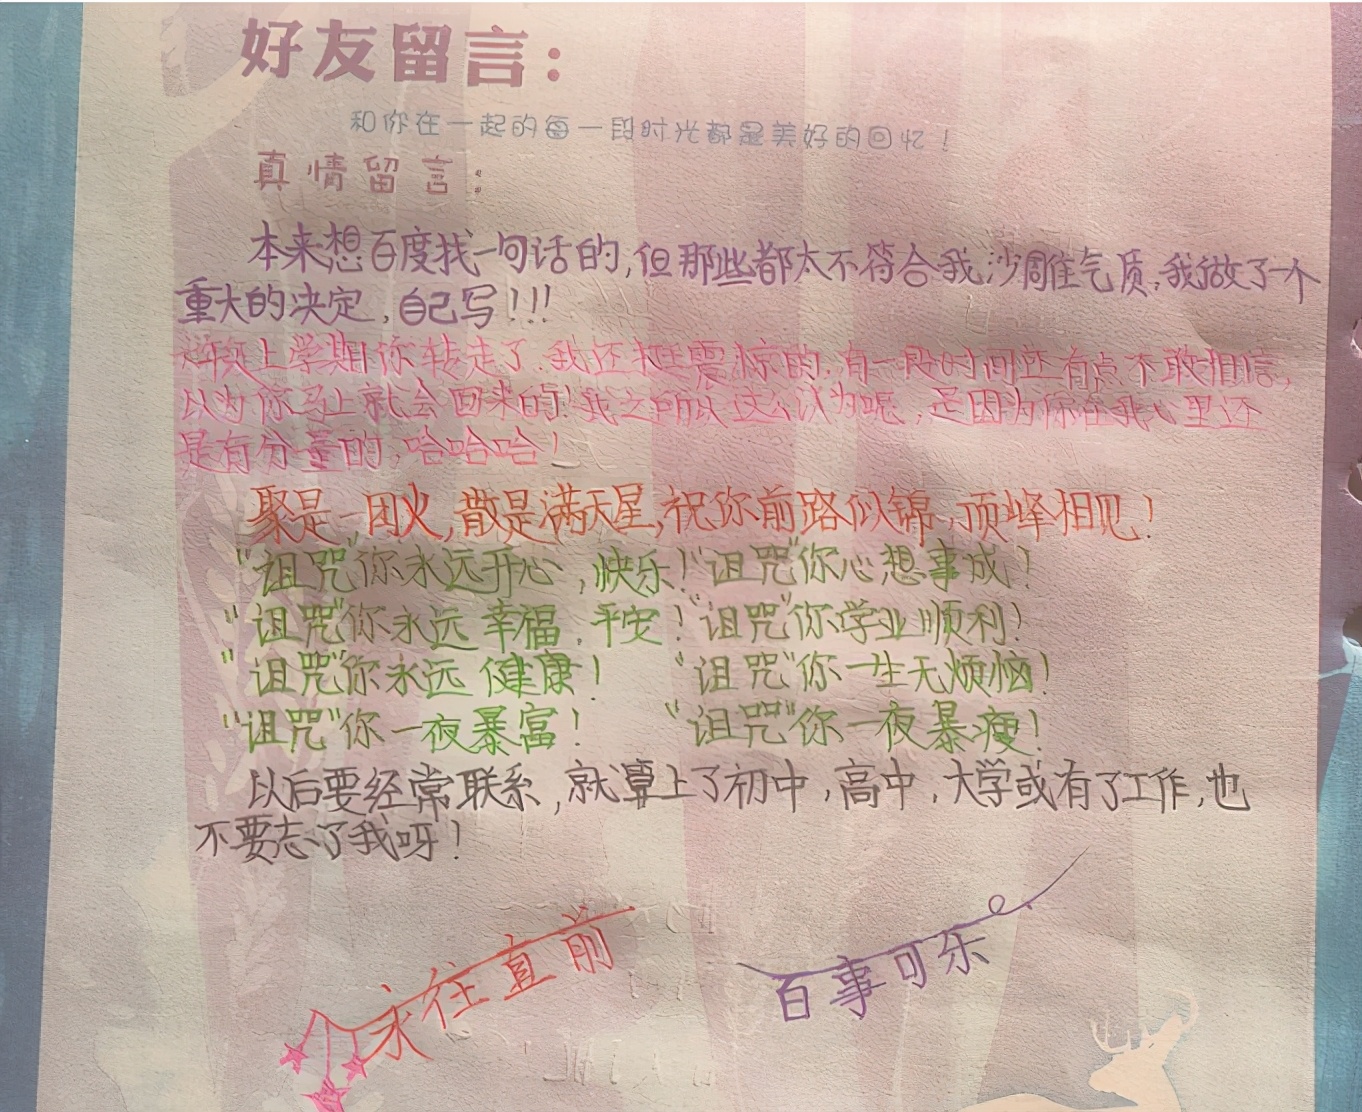 好友留言：
和你在一起的每一段时光都是美好的回忆！
真情留言：
本来想百度找一句话的，但那些都太不符合我沙雕气质，我做了一个
重大的决定，自己写！！！
上学期你转走了，我还挺震惊的，有一段时间还有点不敢相信，
以为你马上就会回来的！我之所以这么认为呢，是因为你在我心里还
是有分量的，哈哈哈！
聚是一团火，散是满天星，祝你前路似锦，顶峰相见！
“诅咒”你永远开心，快乐！“诅咒”你心想事成！
“诅咒”你永远幸福，平安！“诅咒”你学业顺利！
“诅咒”你永远健康！“诅咒”你一生无烦恼！
“诅咒”你一夜暴富！“诅咒”你一夜暴瘦！
以后要经常联系，就算上了初中，高中，大学或有了工作，也
不要忘了我呀！
永往直前
百事可乐